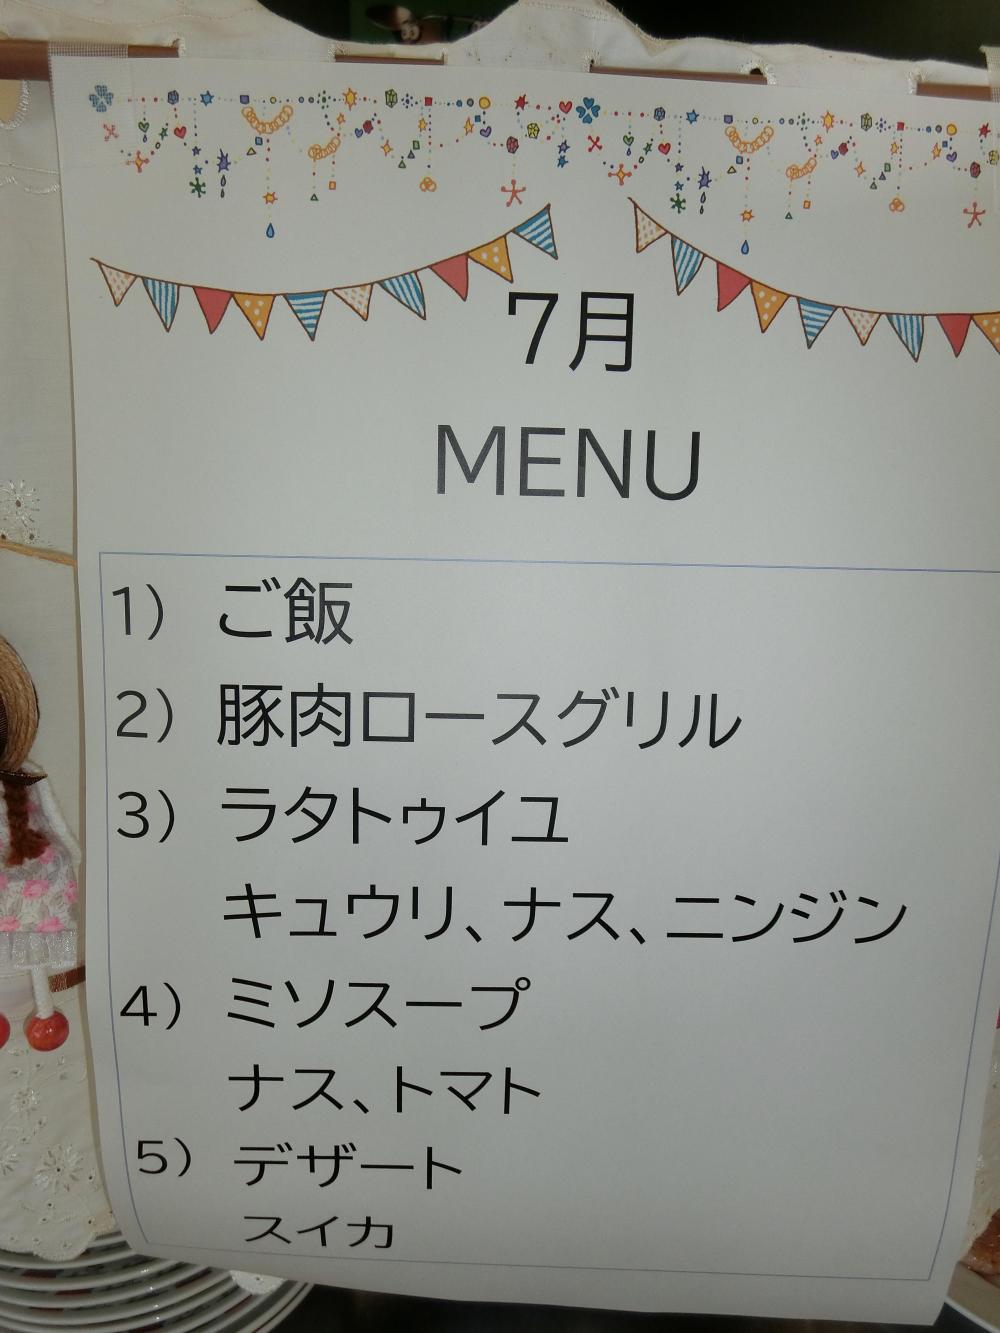 7月
MENU
1) ご飯
2) 豚肉ロースグリル
3) ラタトゥイユ
キュウリ、ナス、ニンジン
4) ミソスープ
ナス、トマト
5) デザート
スイカ